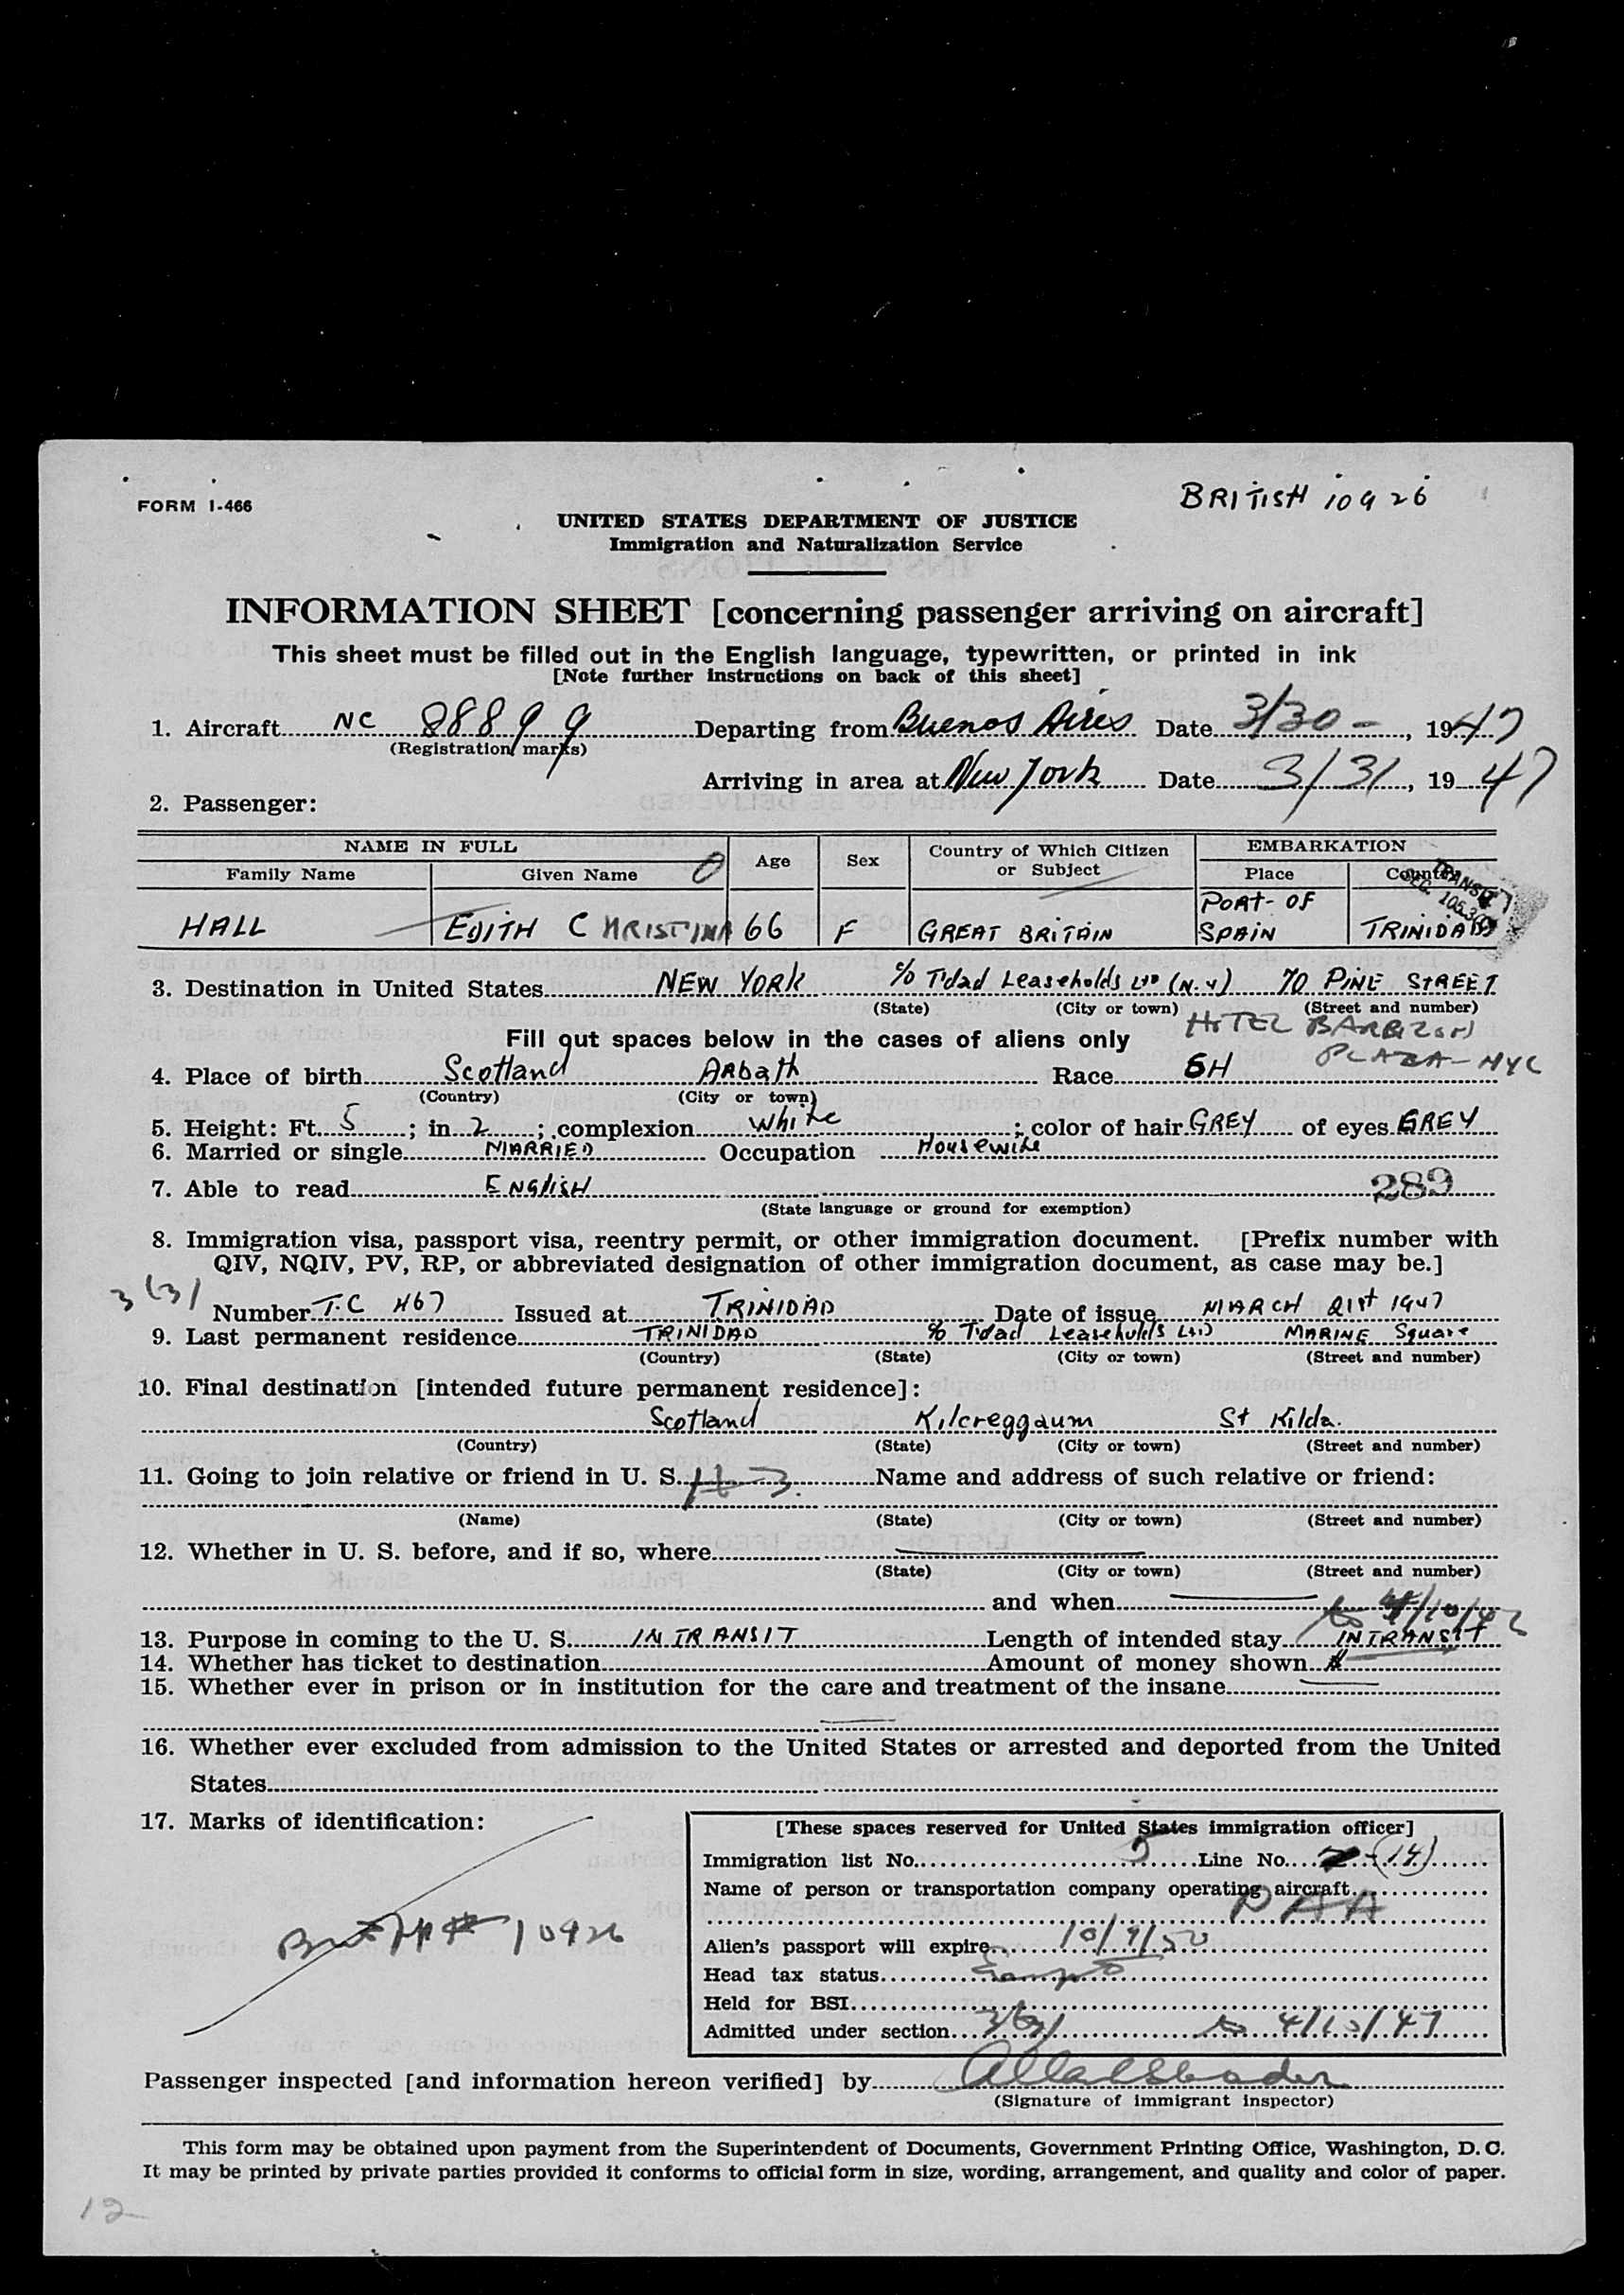 BRITISH 10926
FORM I-466
UNITED STATES DEPARTMENT OF JUSTICE
Immigration and Naturalization Service
INFORMATION SHEET [concerning passenger arriving on aircraft]
This sheet must be filled out in the English language, typewritten, or printed in ink
[Note further instructions on back of this sheet]
1. Aircraft NC 88899 Departing from Buenos Aires Date 3/30 - , 1947
(Registration marks)
Arriving in area at New York Date 3/31, 1947
2. Passenger:
NAME IN FULL Age Sex Country of Which Citizen or Subject EMBARKATION
Family Name Given Name Place Country
TRANSIT
SEC. 105.3
HALL EDITH CHRISTINA 66 F GREAT BRITAIN PORT-OF SPAIN TRINIDAD
3. Destination in United States NEW YORK c/o T'dad Leaseholds LTD (N.Y) 70 PINE STREET
(State) (City or town) (Street and number)
HOTEL BARBIZON
PLAZA-NYC
Fill out spaces below in the cases of aliens only
4. Place of birth Scotland Arbath Race SH
(Country) (City or town)
5. Height: Ft. 5; in 2; complexion White; color of hair GREY of eyes GREY
6. Married or single MARRIED Occupation Housewife
7. Able to read ENGLISH 289
(State language or ground for exemption)
8. Immigration visa, passport visa, reentry permit, or other immigration document. [Prefix number with
QIV, NQIV, PV, RP, or abbreviated designation of other immigration document, as case may be.]
3(3)
Number T.C 467 Issued at TRINIDAD Date of issue MARCH 21st 1947
9. Last permanent residence TRINIDAD c/o T'dad Leaseholds LTD MARINE Square
(Country) (State) (City or town) (Street and number)
10. Final destination [intended future permanent residence]:
Scotland Kilcreggaum St Kilda.
(Country) (State) (City or town) (Street and number)
11. Going to join relative or friend in U. S. Name and address of such relative or friend:
(Name) (State) (City or town) (Street and number)
12. Whether in U. S. before, and if so, where
(State) (City or town) (Street and number)
and when
13. Purpose in coming to the U. S. IN TRANSIT Length of intended stay INTRANSIT
14. Whether has ticket to destination Amount of money shown $
15. Whether ever in prison or in institution for the care and treatment of the insane
16. Whether ever excluded from admission to the United States or arrested and deported from the United
States
17. Marks of identification:
[These spaces reserved for United States immigration officer]
Immigration list No. 5 Line No. (14)
Name of person or transportation company operating aircraft
PAA
Brit PP # 10926
Alien's passport will expire 10/9/50
Head tax status Exempt
Held for BSI
Admitted under section 3(3) to 4/10/47
Passenger inspected [and information hereon verified] by
(Signature of immigrant inspector)
This form may be obtained upon payment from the Superintendent of Documents, Government Printing Office, Washington, D. C.
It may be printed by private parties provided it conforms to official form in size, wording, arrangement, and quality and color of paper.
12